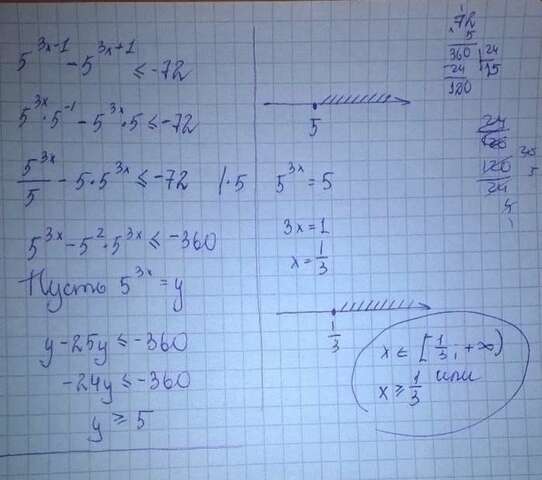 5^{3x-1} - 5^{3x+1} ≤ -72
5^{3x} · 5^{-1} - 5^{3x} · 5 ≤ -72
5^{3x}/5 - 5 · 5^{3x} ≤ -72 | · 5
5^{3x} - 5^2 · 5^{3x} ≤ -360
Пусть 5^{3x} = y
y - 25y ≤ -360
-24y ≤ -360
y ≥ 5
5
5^{3x} = 5
3x = 1
x = 1/3
1/3
x ∈ [1/3; +∞)
или
x ≥ 1/3
72
5
360 | 24
24 15
120
120
24